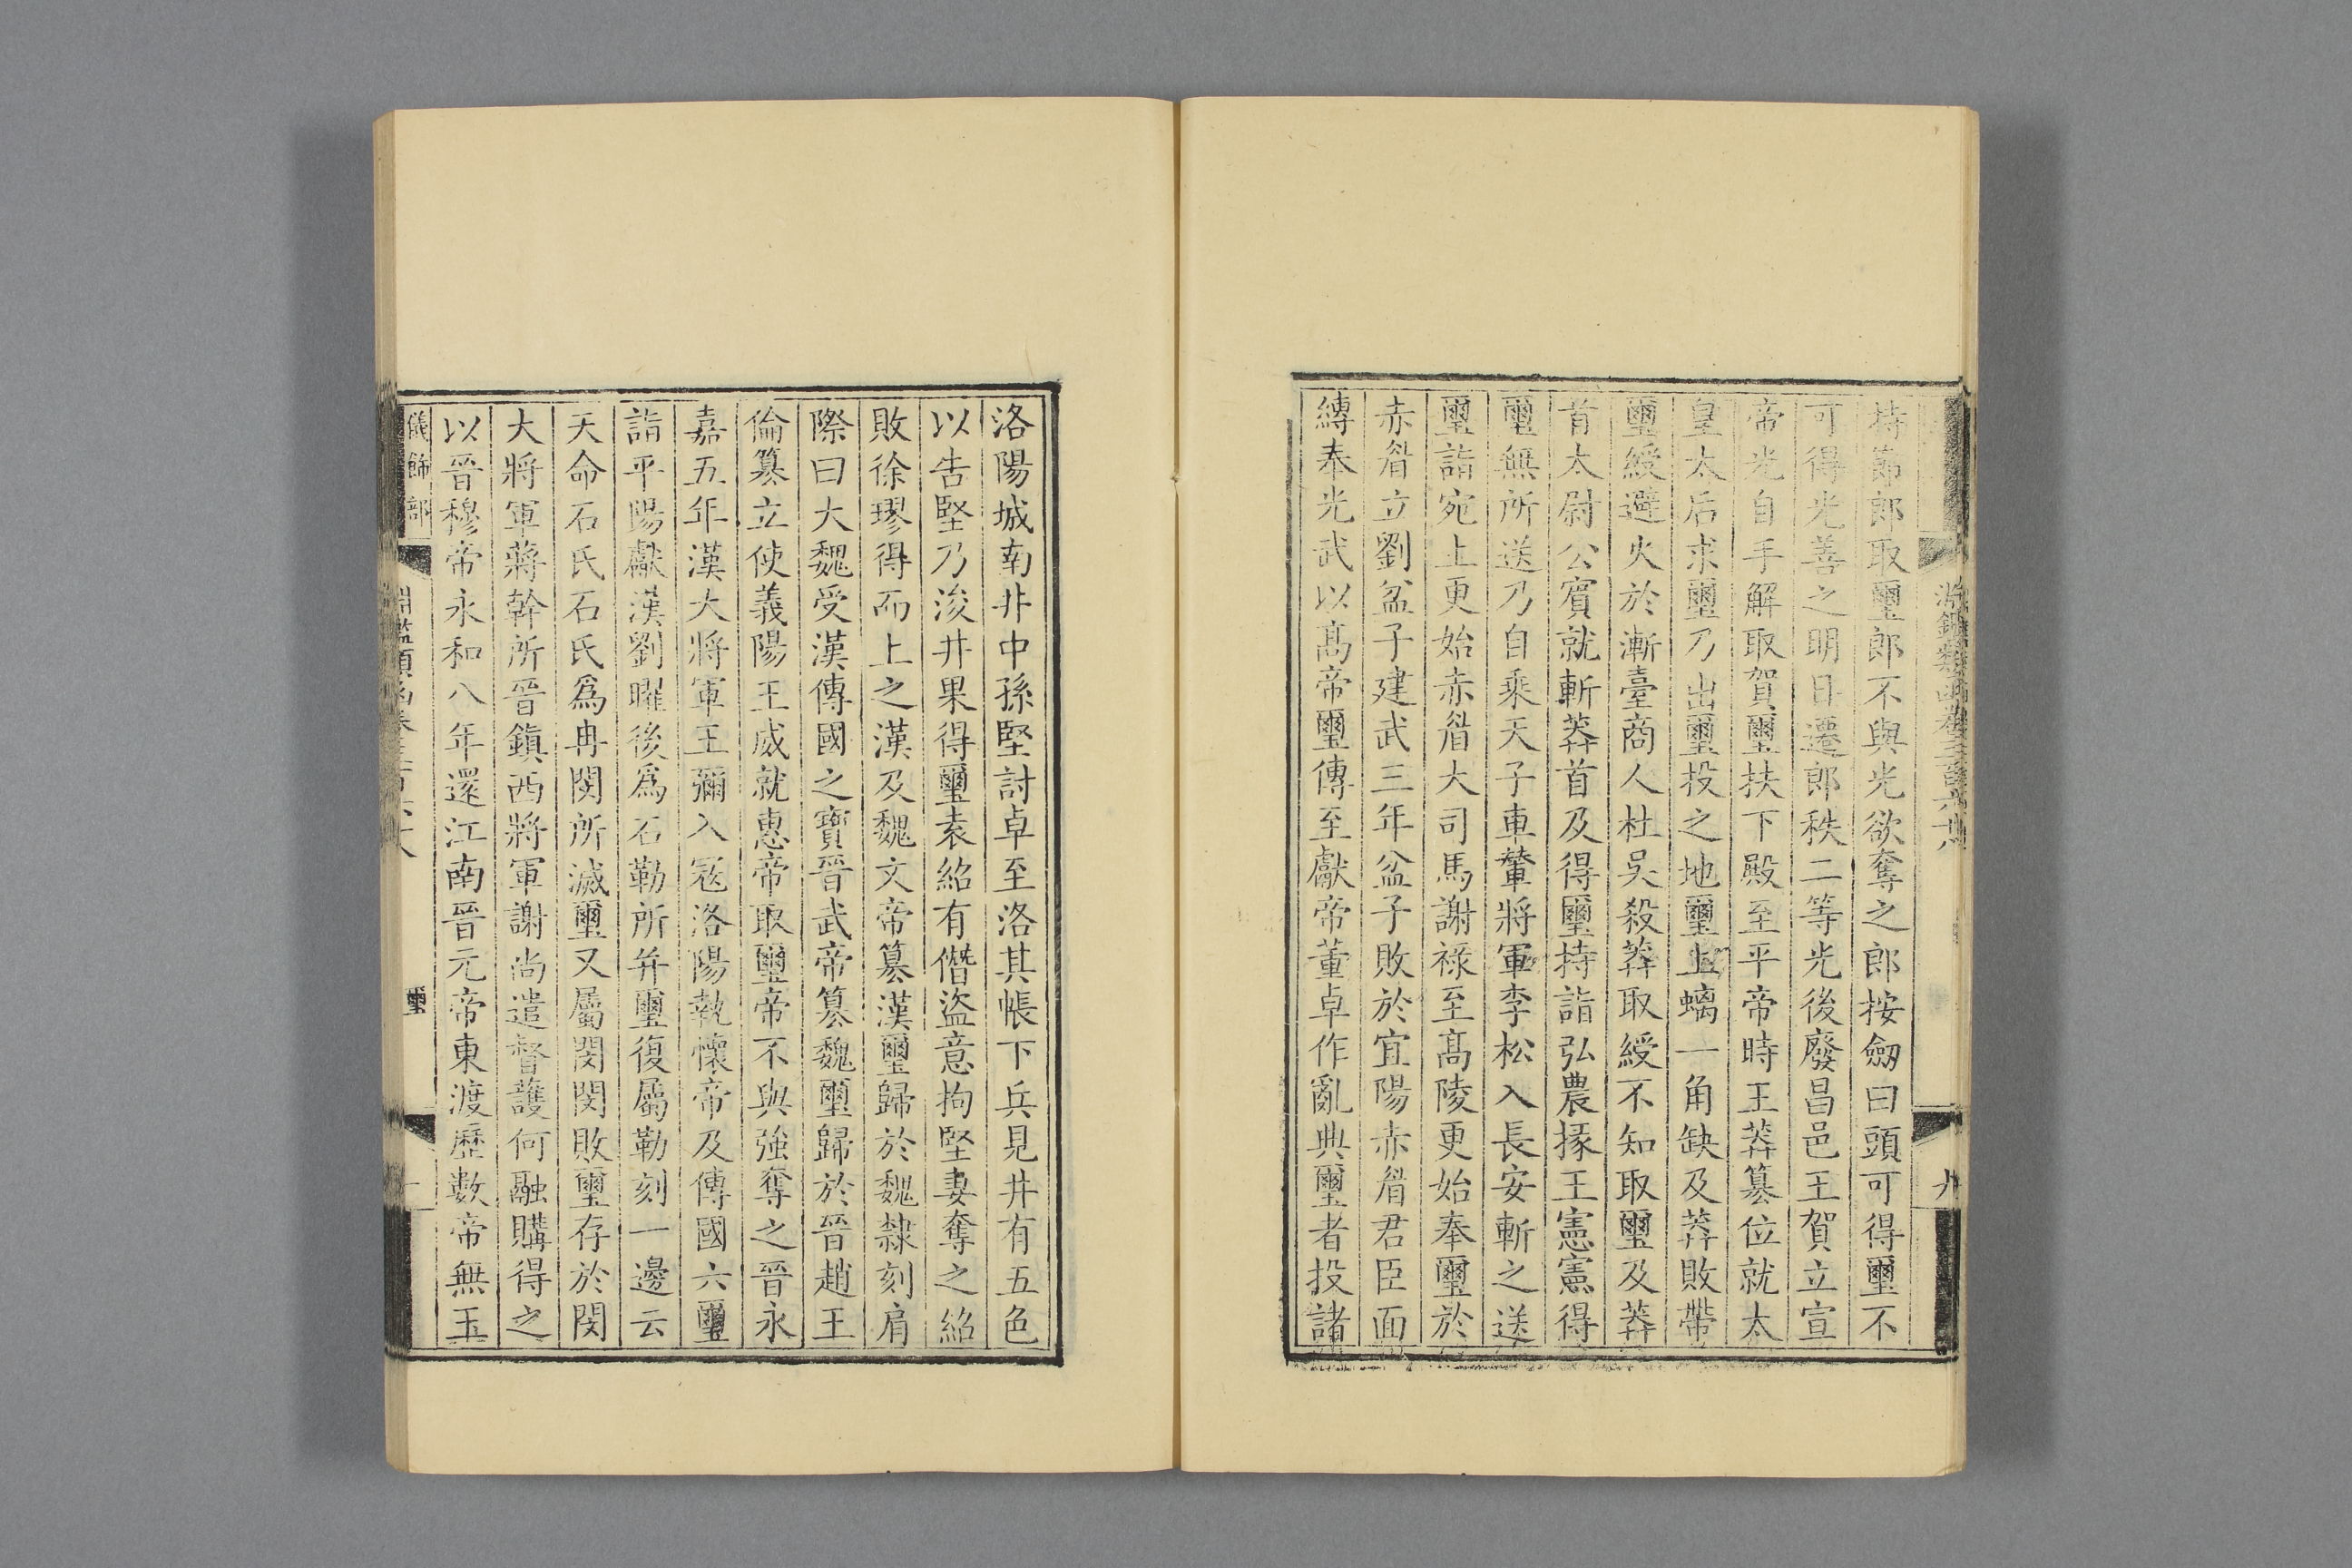 持節郎取璽郎不與光欲奪之郎按劔曰頭可得璽不
可得光善之明日遷郎秩二等光後廢昌邑王賀立宣
帝光自手解取賀璽扶下殿至平帝時王莽簒位就太
皇太后求璽乃出璽投之地璽上螭一角缺及莽敗帶
璽綬避火於漸臺商人杜吳殺莽取綬不知取璽及莽
首太尉公賔就斬莽首及得璽持詣弘農掾王憲憲得
璽無所送乃自乘天子車輦將軍李松入長安斬之送
璽詣宛上更始赤眉大司馬謝祿至髙陵更始奉璽於
赤眉立劉盆子建武三年盆子敗於宜陽赤眉君臣面
縛奉光武以髙帝璽傳至獻帝董卓作亂典璽者投諸
洛陽城南井中孫堅討卓至洛其帳下兵見井有五色
以告堅乃浚井果得璽袁紹有僭盜意拘堅妻奪之紹
敗徐璆得而上之漢及魏文帝簒漢璽歸於魏隸刻肩
際曰大魏受漢傳國之寶晉武帝簒魏璽歸於晉趙王
倫簒立使義陽王威就惠帝取璽帝不與強奪之晉永
嘉五年漢大將軍王彌入冦洛陽執懷帝及傳國六璽
詣平陽獻漢劉曜後爲石勒所并璽復屬勒刻一邊云
天命石氏石氏爲冉閔所滅璽又屬閔閔敗璽存於閔
大將軍蔣幹所晉鎭西將軍謝尚遣督護何融購得之
以晉穆帝永和八年還江南晉元帝東渡歷數帝無玉
儀飾部
璽